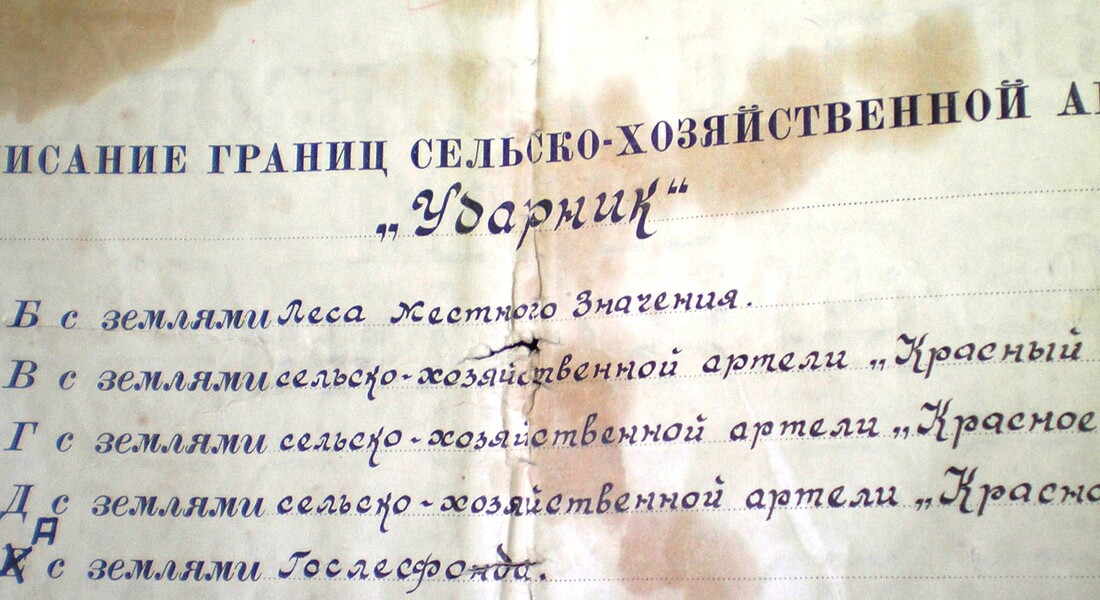 ИСАНИЕ ГРАНИЦ СЕЛЬСКО-ХОЗЯЙСТВЕННОЙ А
„Ударник“
Б с землями Леса Местного Значения.
В с землями сельско-хозяйственной артели „Красный
Г с землями сельско-хозяйственной артели „Красное
Д с землями сельско-хозяйственной артели „Красно
А с землями Гослесфонда.